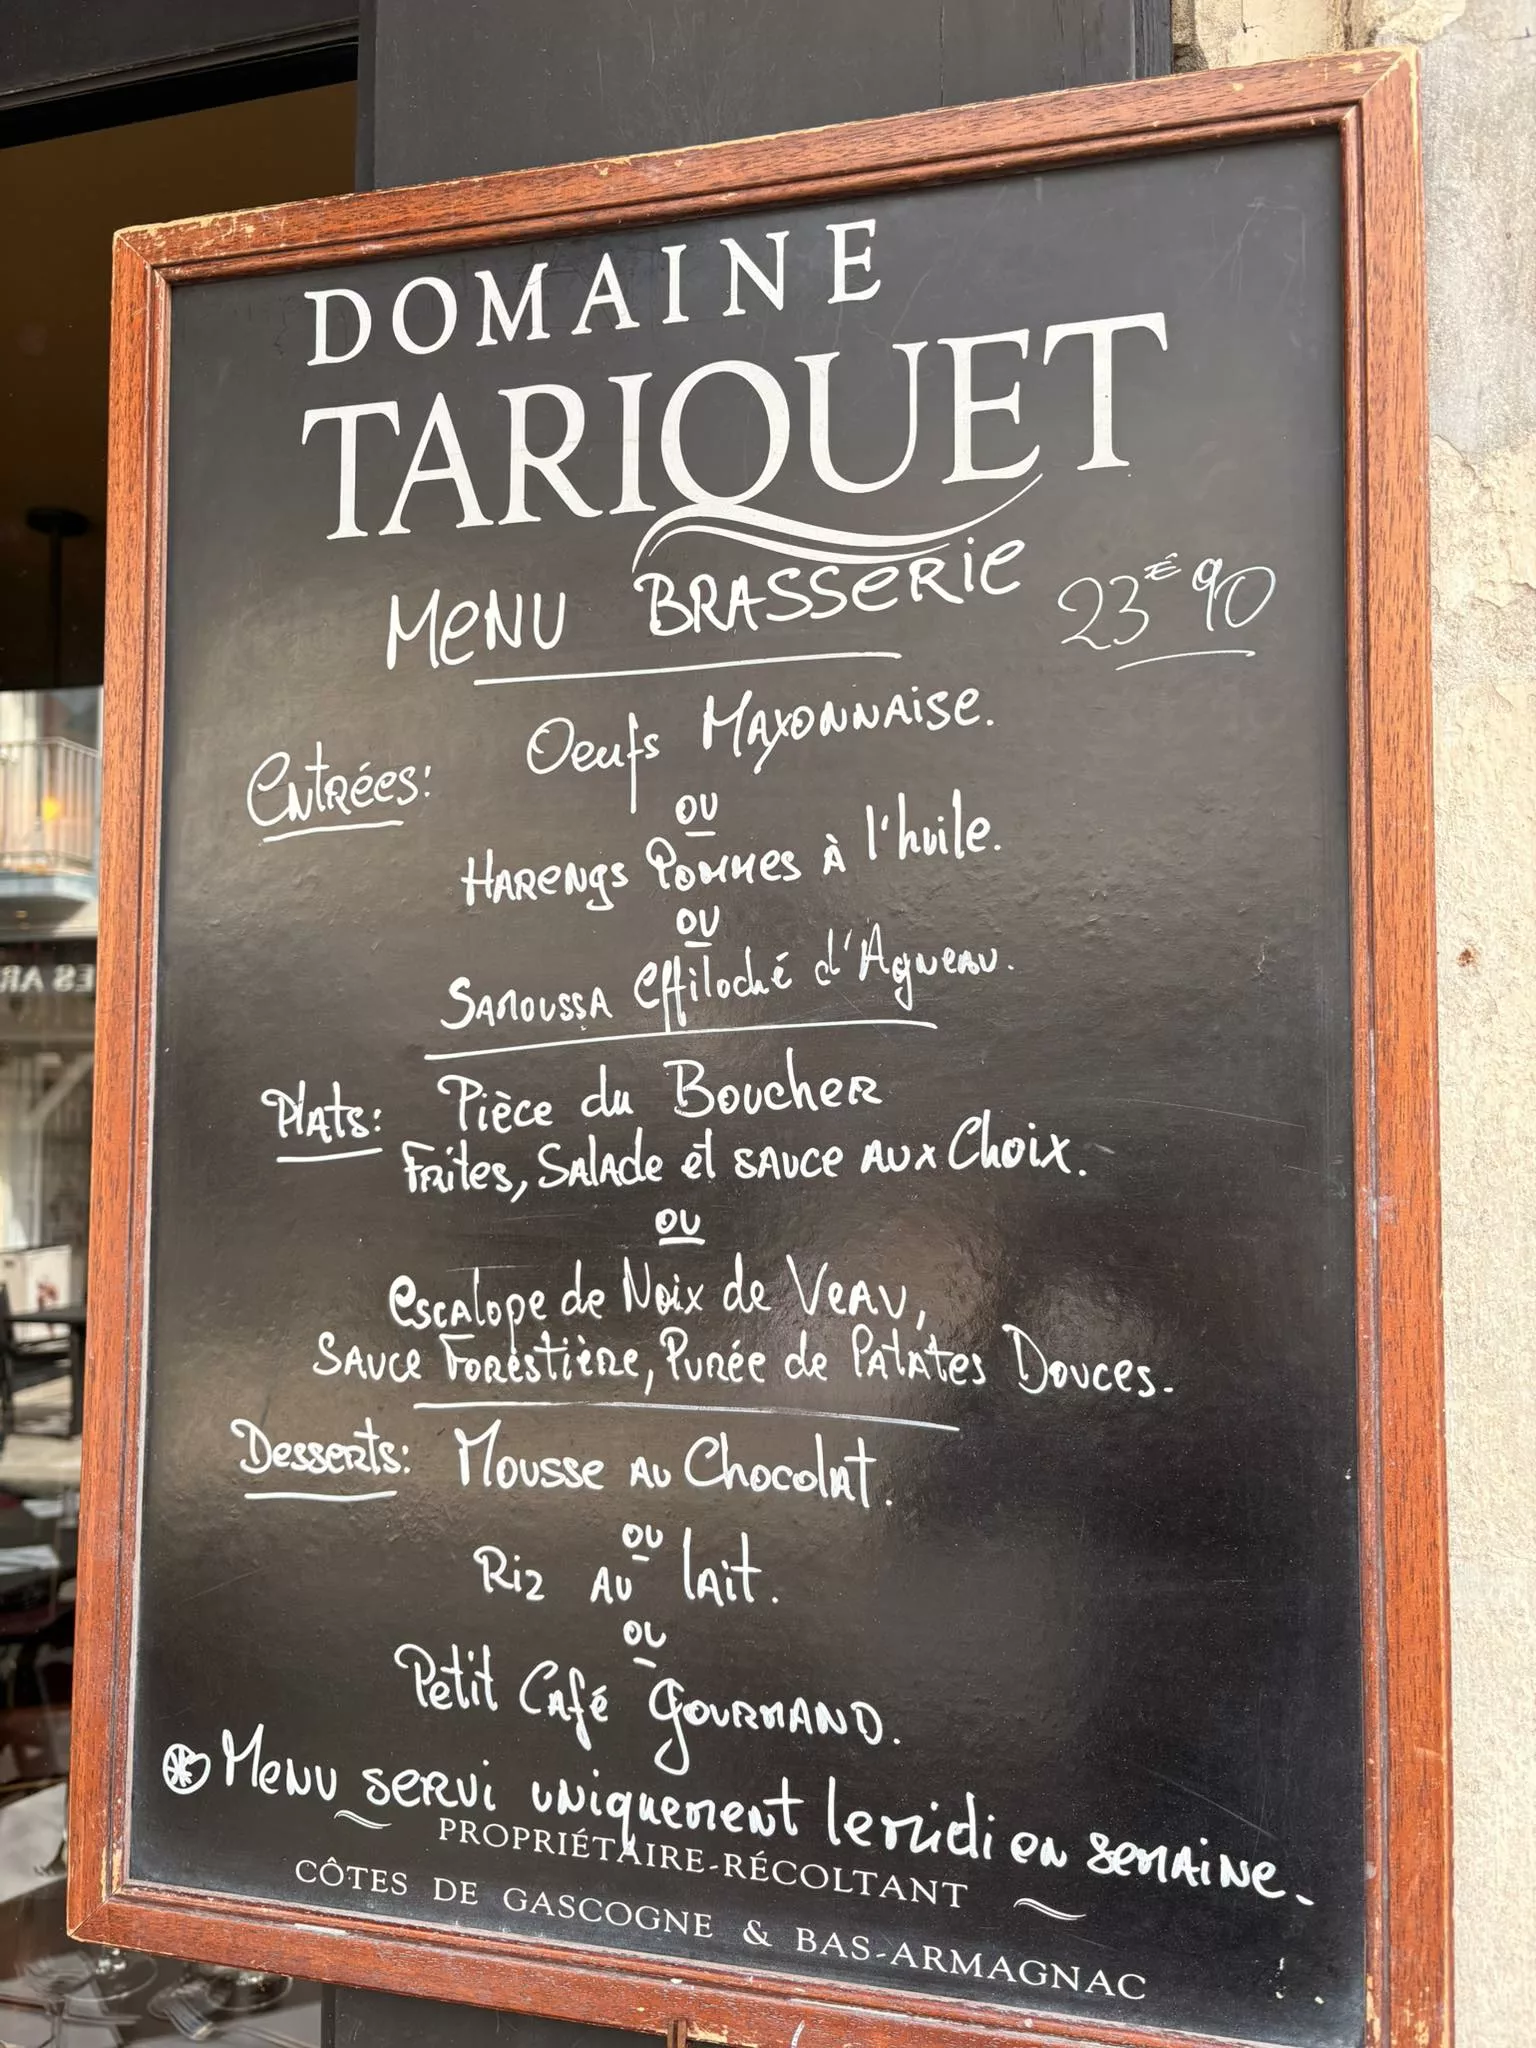 DOMAINE
TARIQUET
MENU BRASSERIE 23€90
Entrées: Oeufs Mayonnaise.
ou
Harengs Pommes à l'huile.
ou
Samoussa Effiloché d'Agneau.
Plats: Pièce du Boucher
Frites, Salade et sauce aux Choix.
ou
Escalope de Noix de Veau,
Sauce Forestière, Purée de Patates Douces.
Desserts: Mousse au Chocolat.
ou
Riz au lait.
ou
Petit Café Gourmand.
Menu servi uniquement le midi en semaine.
PROPRIÉTAIRE-RÉCOLTANT
CÔTES DE GASCOGNE & BAS-ARMAGNAC